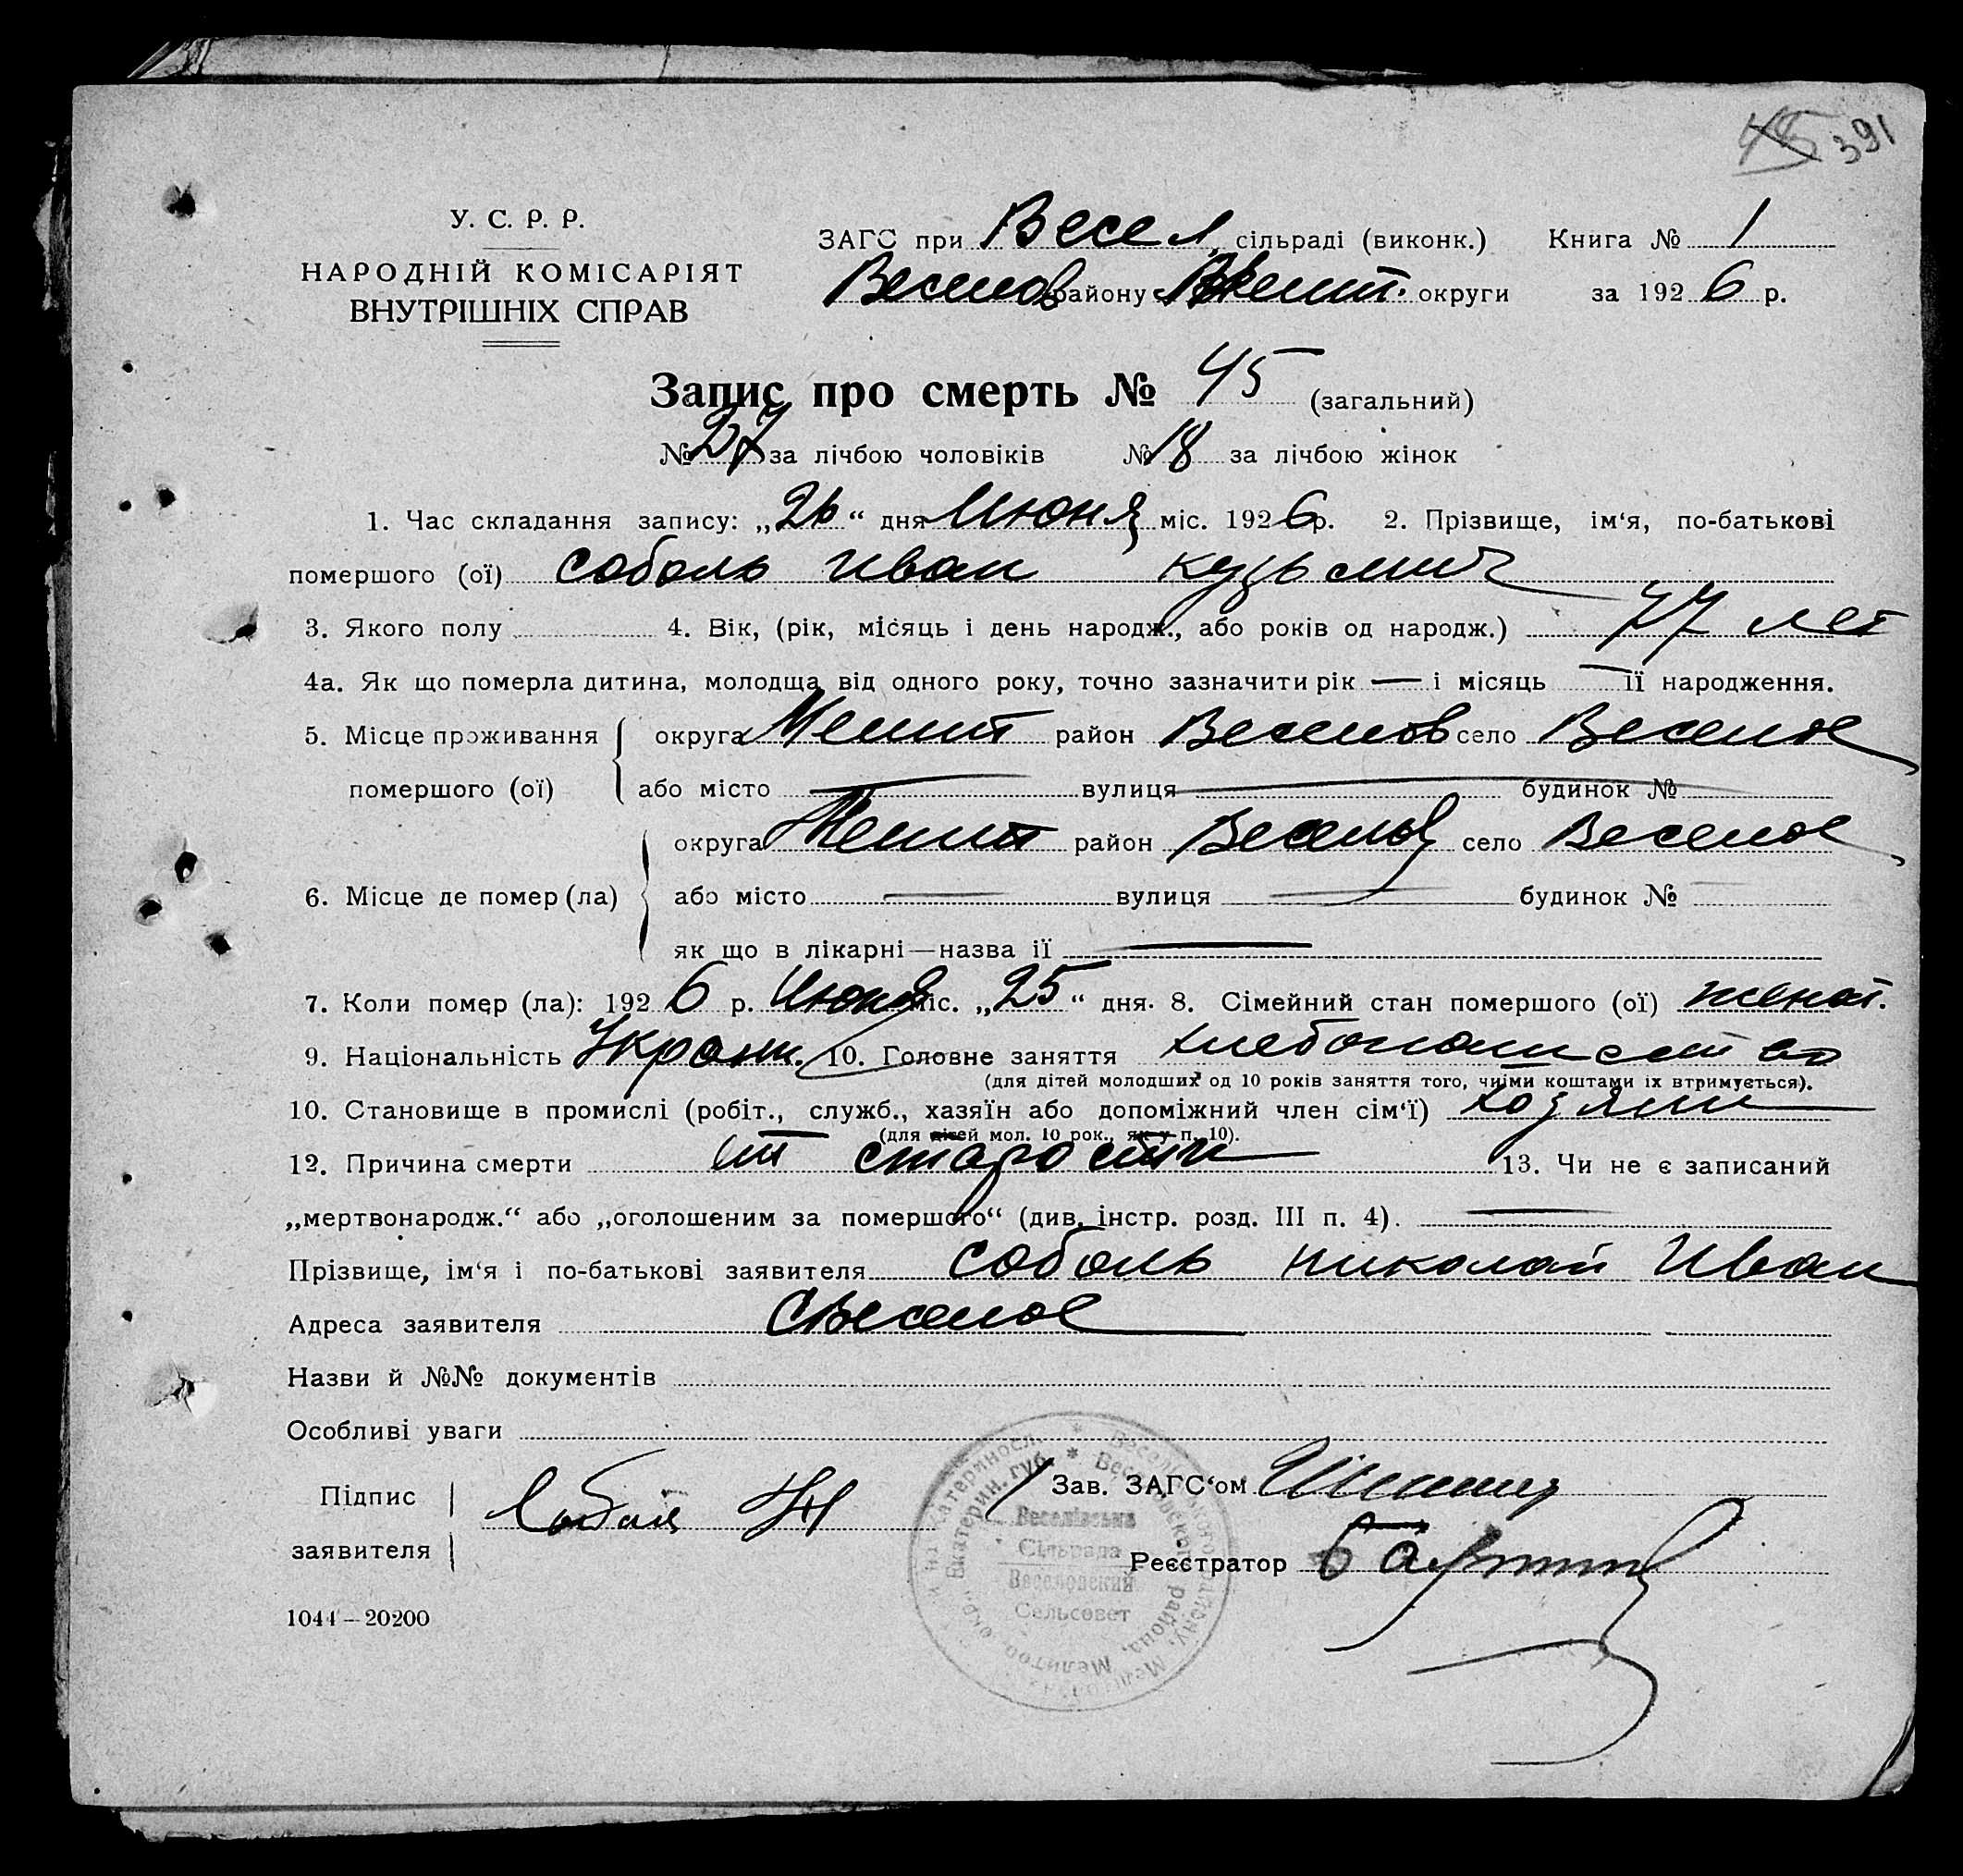 391
У. С. Р. Р.
НАРОДНІЙ КОМІСАРІЯТ
ВНУТРІШНІХ СПРАВ
ЗАГС при Весел. сільраді (виконк.) Книга № 1
Веселов району Мелит. округи за 1926 р.
Запис про смерть № 45 (загальний)
№ 27 за лічбою чоловіків № 18 за лічбою жінок
1. Час складання запису: „26“ дня Июня міс. 1926 р. 2. Прізвище, ім‘я, по-батькові
помершого (ої) Соболь Иван Кузьмич
3. Якого полу 4. Вік, (рік, місяць і день народж., або років од народж.) 77 лет
4а. Як що померла дитина, молодща від одного року, точно зазначити рік — і місяць — її народження.
5. Місце проживання округа Мелит район Веселов село Веселое
помершого (ої) або місто — вулиця — будинок №
округа Мелит район Веселов село Веселое
6. Місце де помер (ла) або місто — вулиця — будинок №
як що в лікарні—назва ії —
7. Коли помер (ла): 1926 р. Июня міс. „25“ дня. 8. Сімейний стан помершого (ої) женат.
9. Національність Украин. 10. Головне заняття хлебопашество
(для дітей молодших од 10 років заняття того, чиїми коштами іх втримується).
10. Становище в промислі (робіт., служб., хазяїн або допоміжний член сім‘ї) хозяин
(для дітей мол. 10 рок., як у п. 10).
12. Причина смерти от старости 13. Чи не є записаний
„мертвонародж.“ або „оголошеним за помершого“ (див. інстр. розд. III п. 4). —
Прізвище, ім‘я і по-батькові заявителя Соболь Николай Иван
Адреса заявителя С Веселое
Назви й №№ документів
Особливі уваги
Підпис заявителя Соболь Н
Зав. ЗАГС‘ом
Реєстратор
Веселівська
Сільрада
Веселовский
Сельсовет
Екатерин. губ. * Веселовского района, Мелитоп. окр.
1044—20200